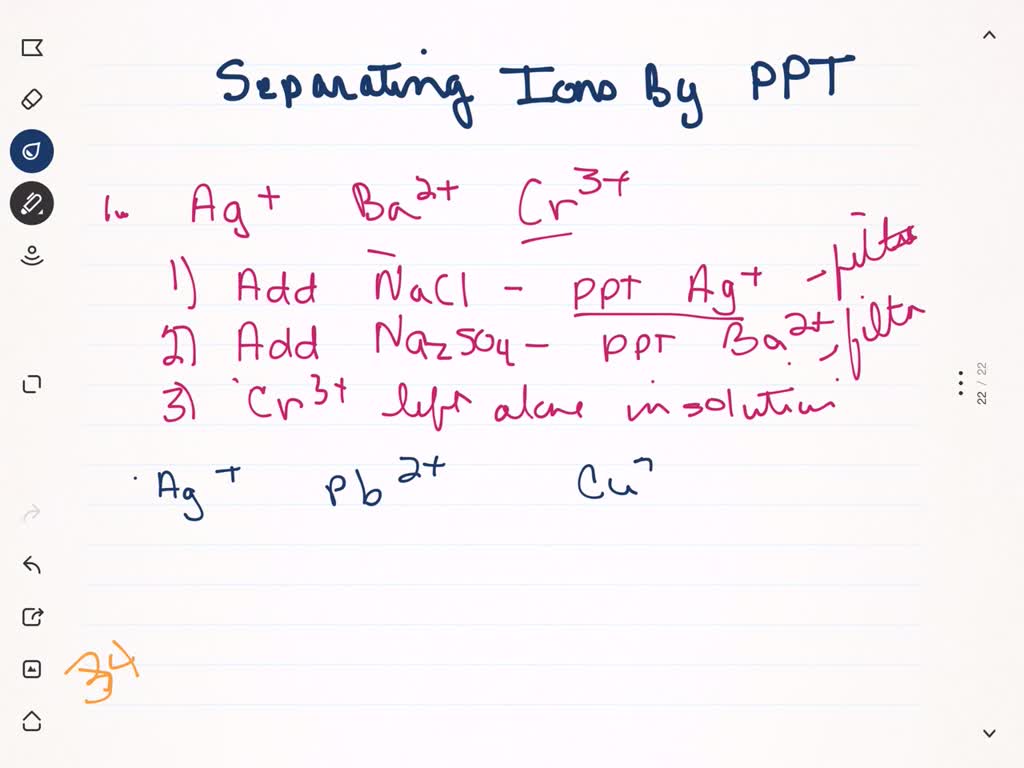 Separating Ions By PPT
1. Ag+ Ba2+ Cr3+
1) Add NaCl - PPT Ag+ - filter
2) Add Na2SO4 - PPT Ba2+, filtr
3) Cr3+ left alone in solution
Ag+ Pb2+ Cu
34
22 / 22